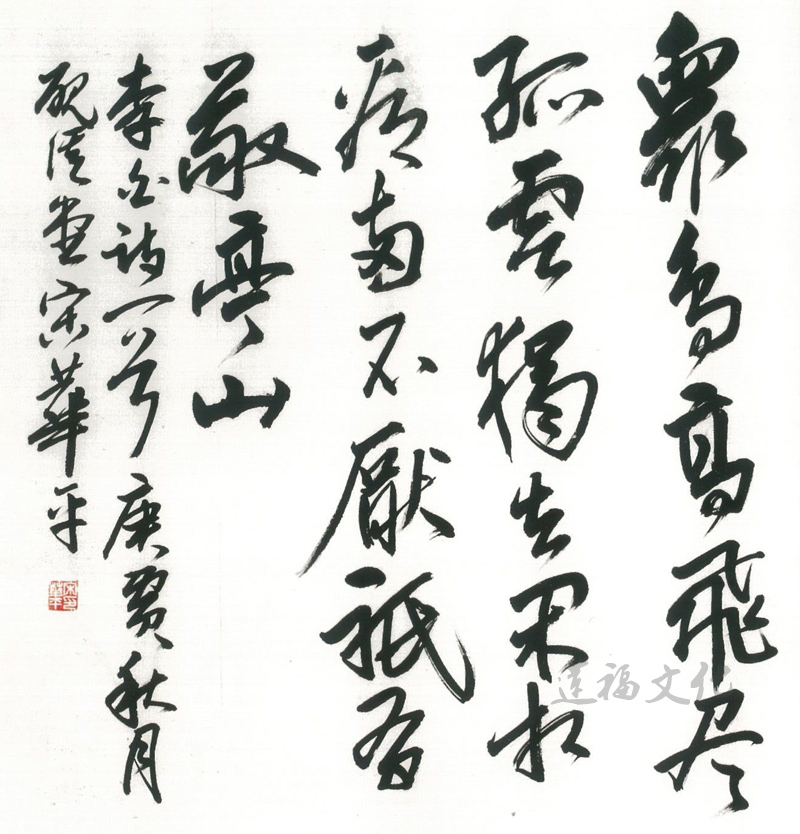 眾鳥高飛尽
孤雲獨去閑相
看兩不厭祇有
敬亭山
李白詩一首 庚寅秋月
堂宋華平
宋華平
莲福文化